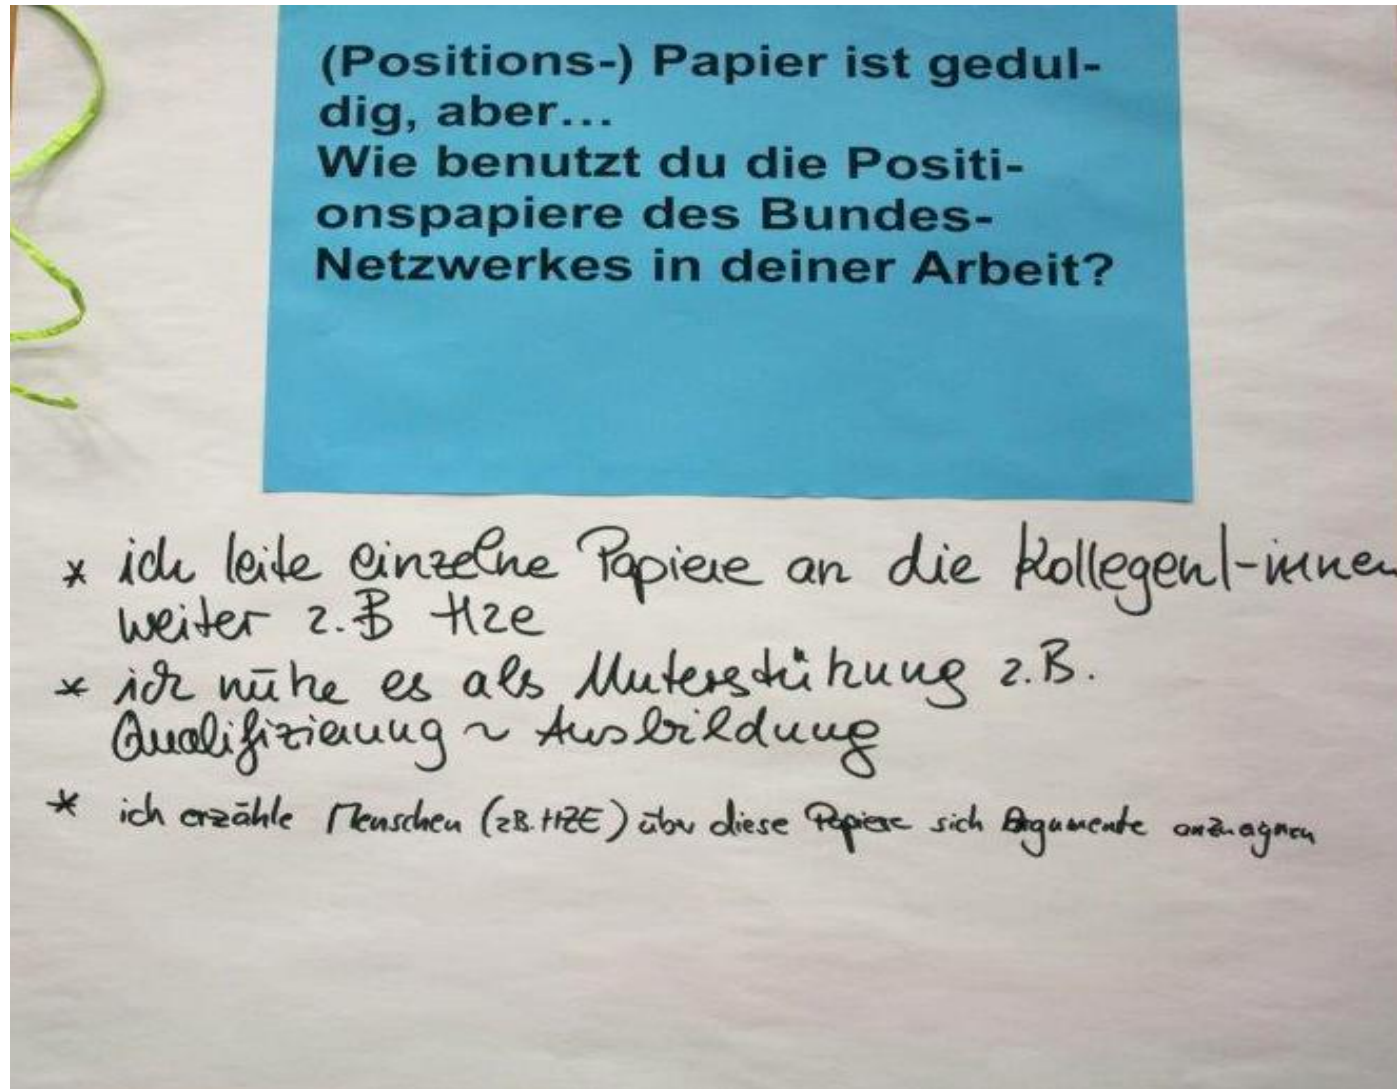 (Positions-) Papier ist gedul-
dig, aber...
Wie benutzt du die Positi-
onspapiere des Bundes-
Netzwerkes in deiner Arbeit?
* ich leite einzelne Papiere an die Kollegen/-innen
weiter z.B HzE
* ich nütze es als Unterstützung z.B.
Qualifizierung ~ Ausbildung
* ich erzähle Menschen (zB. HZE) über diese Papiere sich Argumente